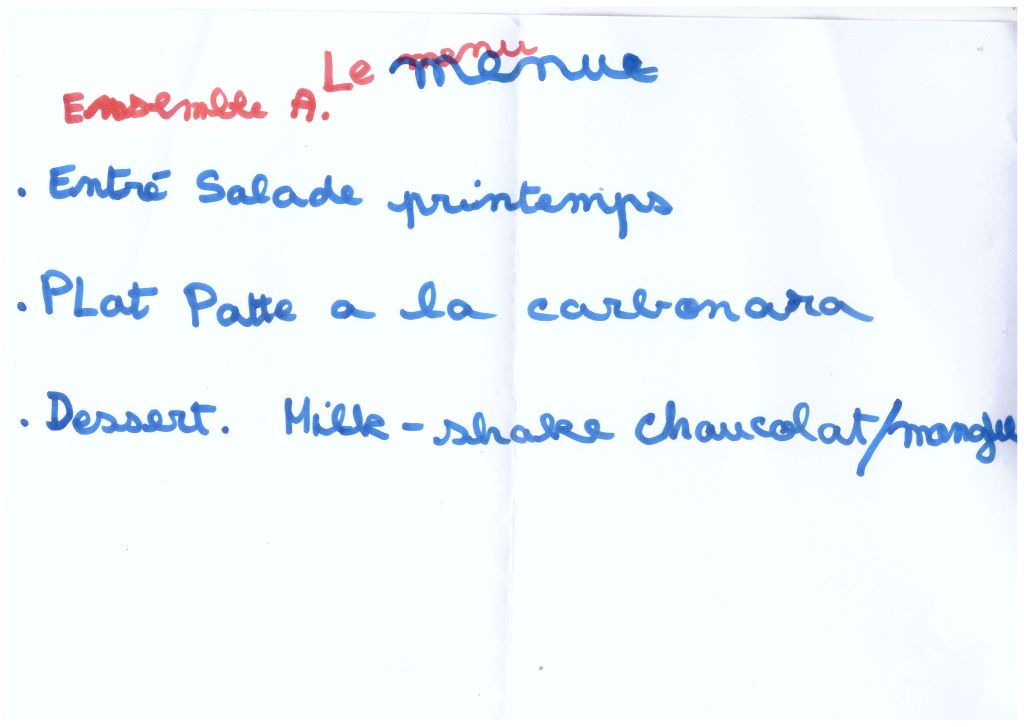 Le menu menue
Ensemble A.
. Entré Salade printemps
. PLat Patte a la carbonara
. Dessert. Milk-shake chaucolat/mangue